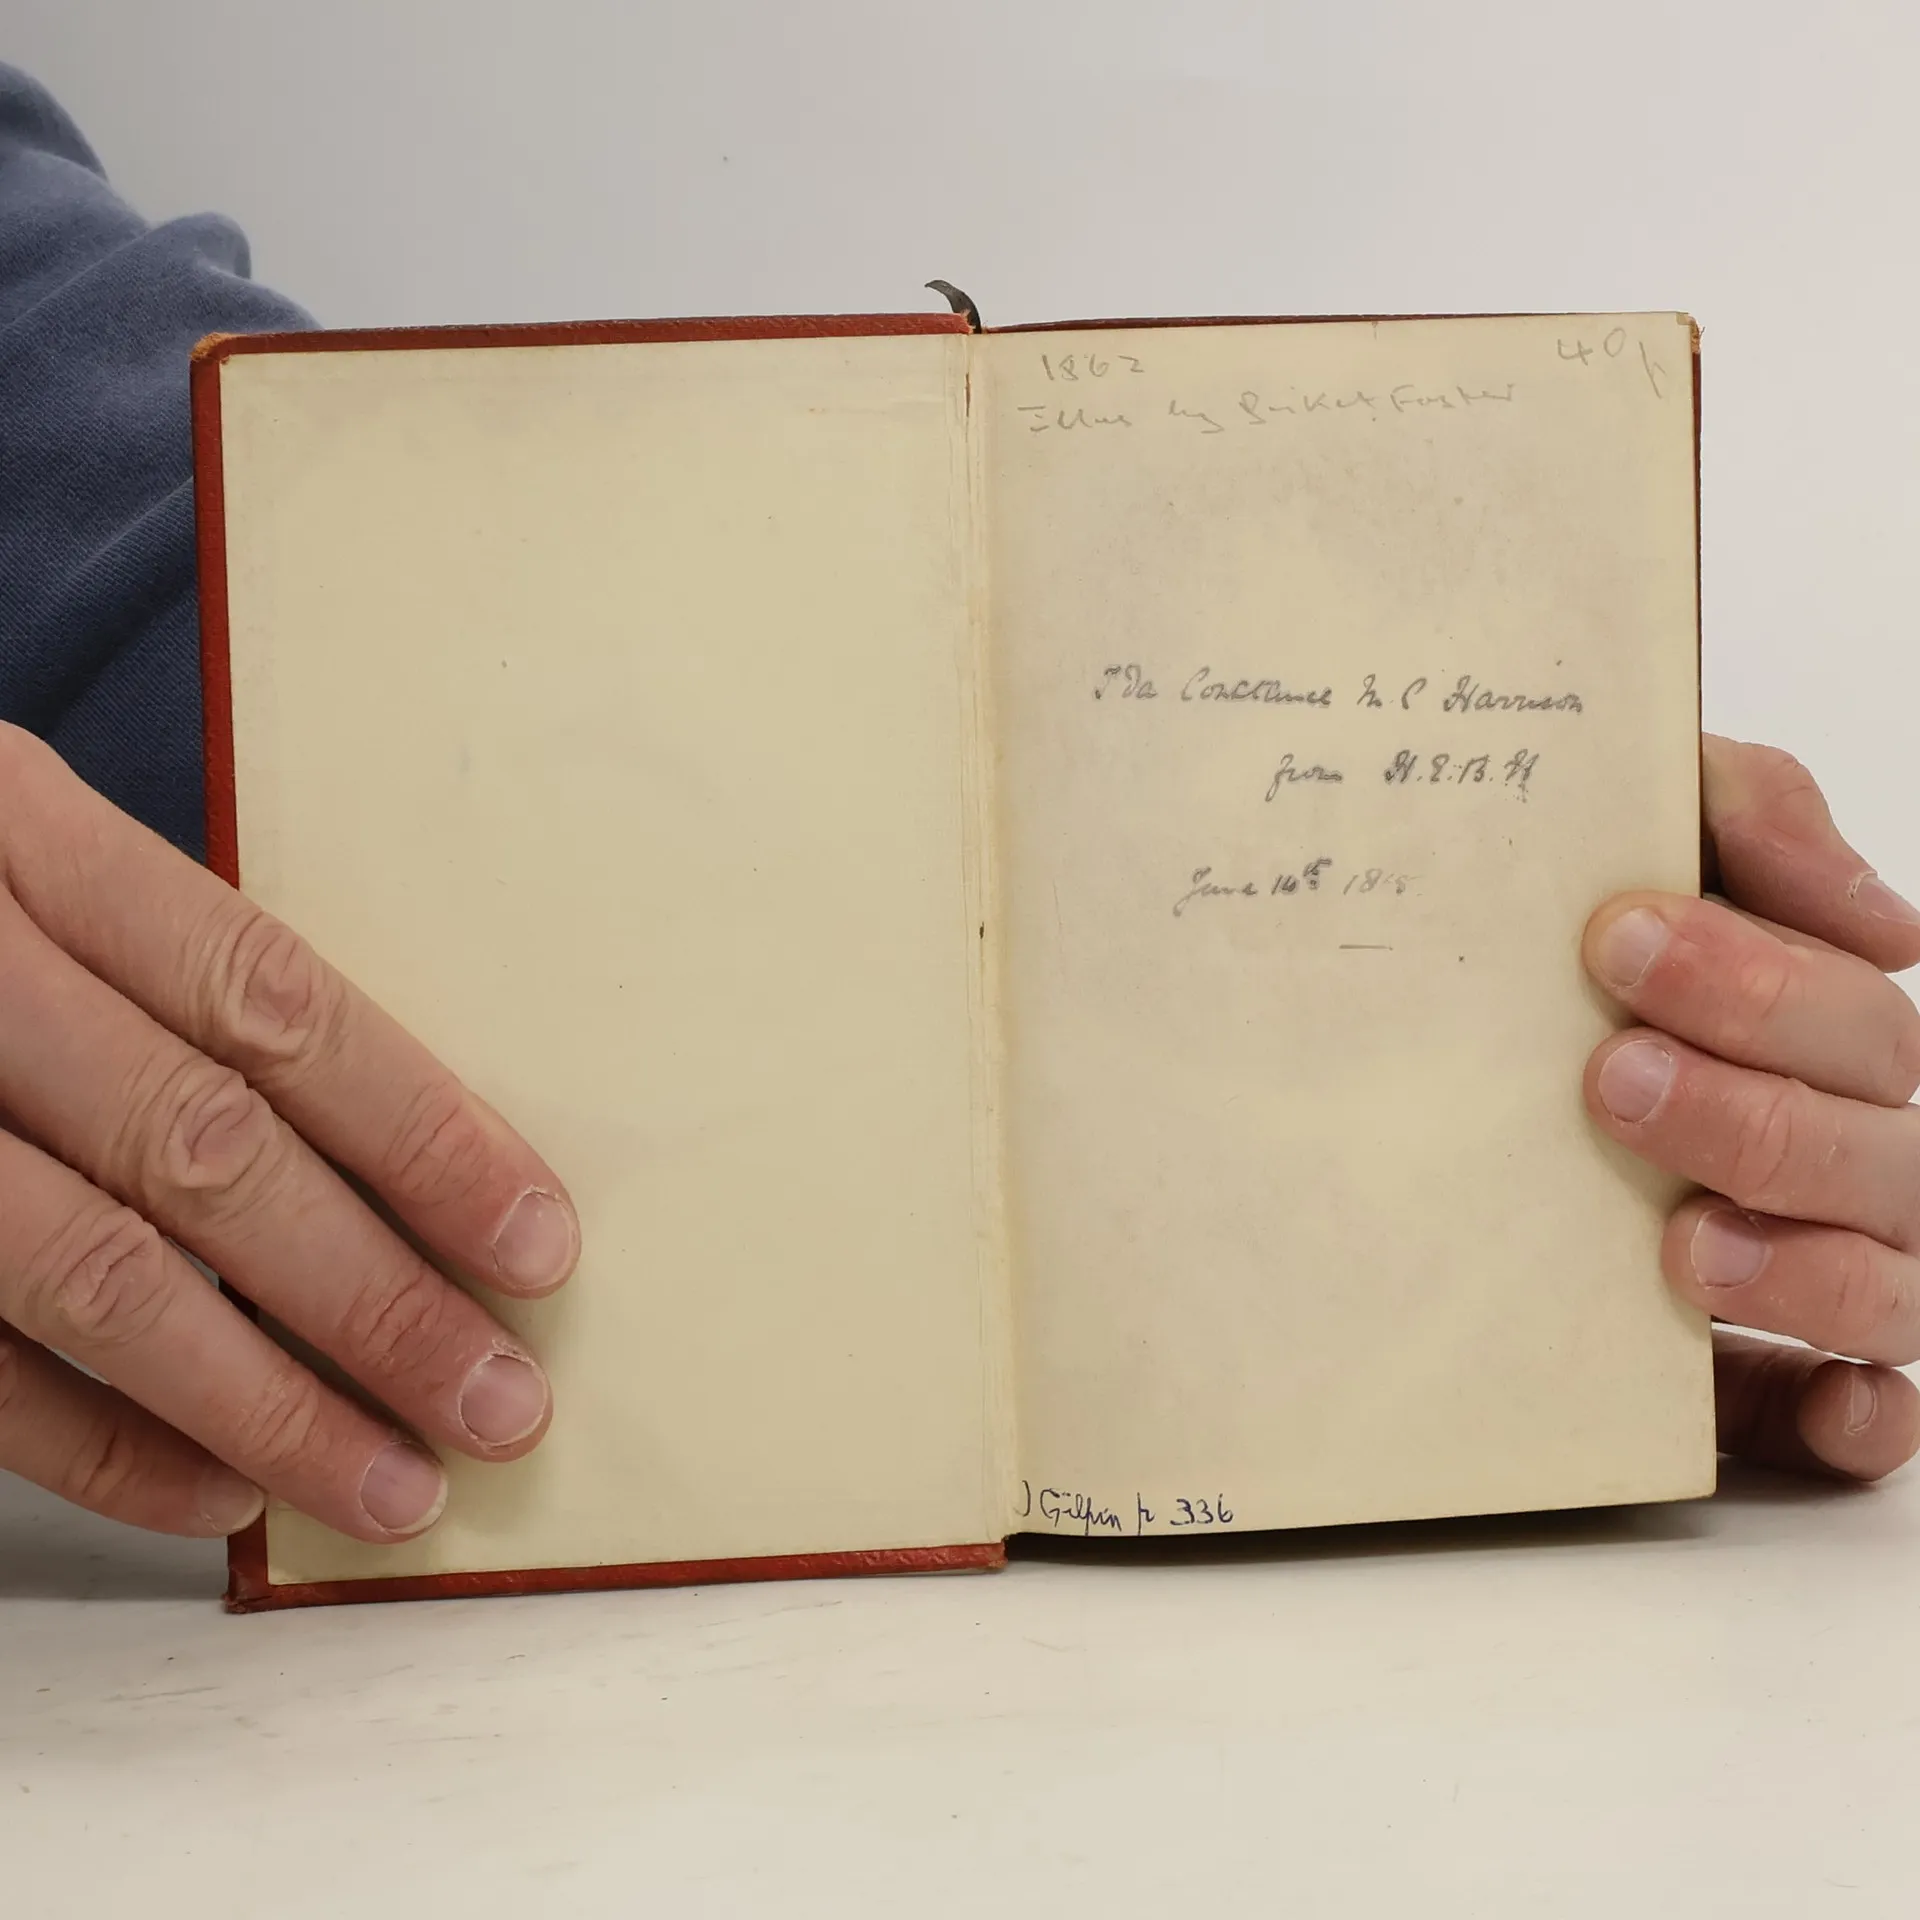 1862
40p
Illus by Birket Foster
Ida Constance M. C Harrison
from H.E.B.H
June 14th
J Gilpin p 336